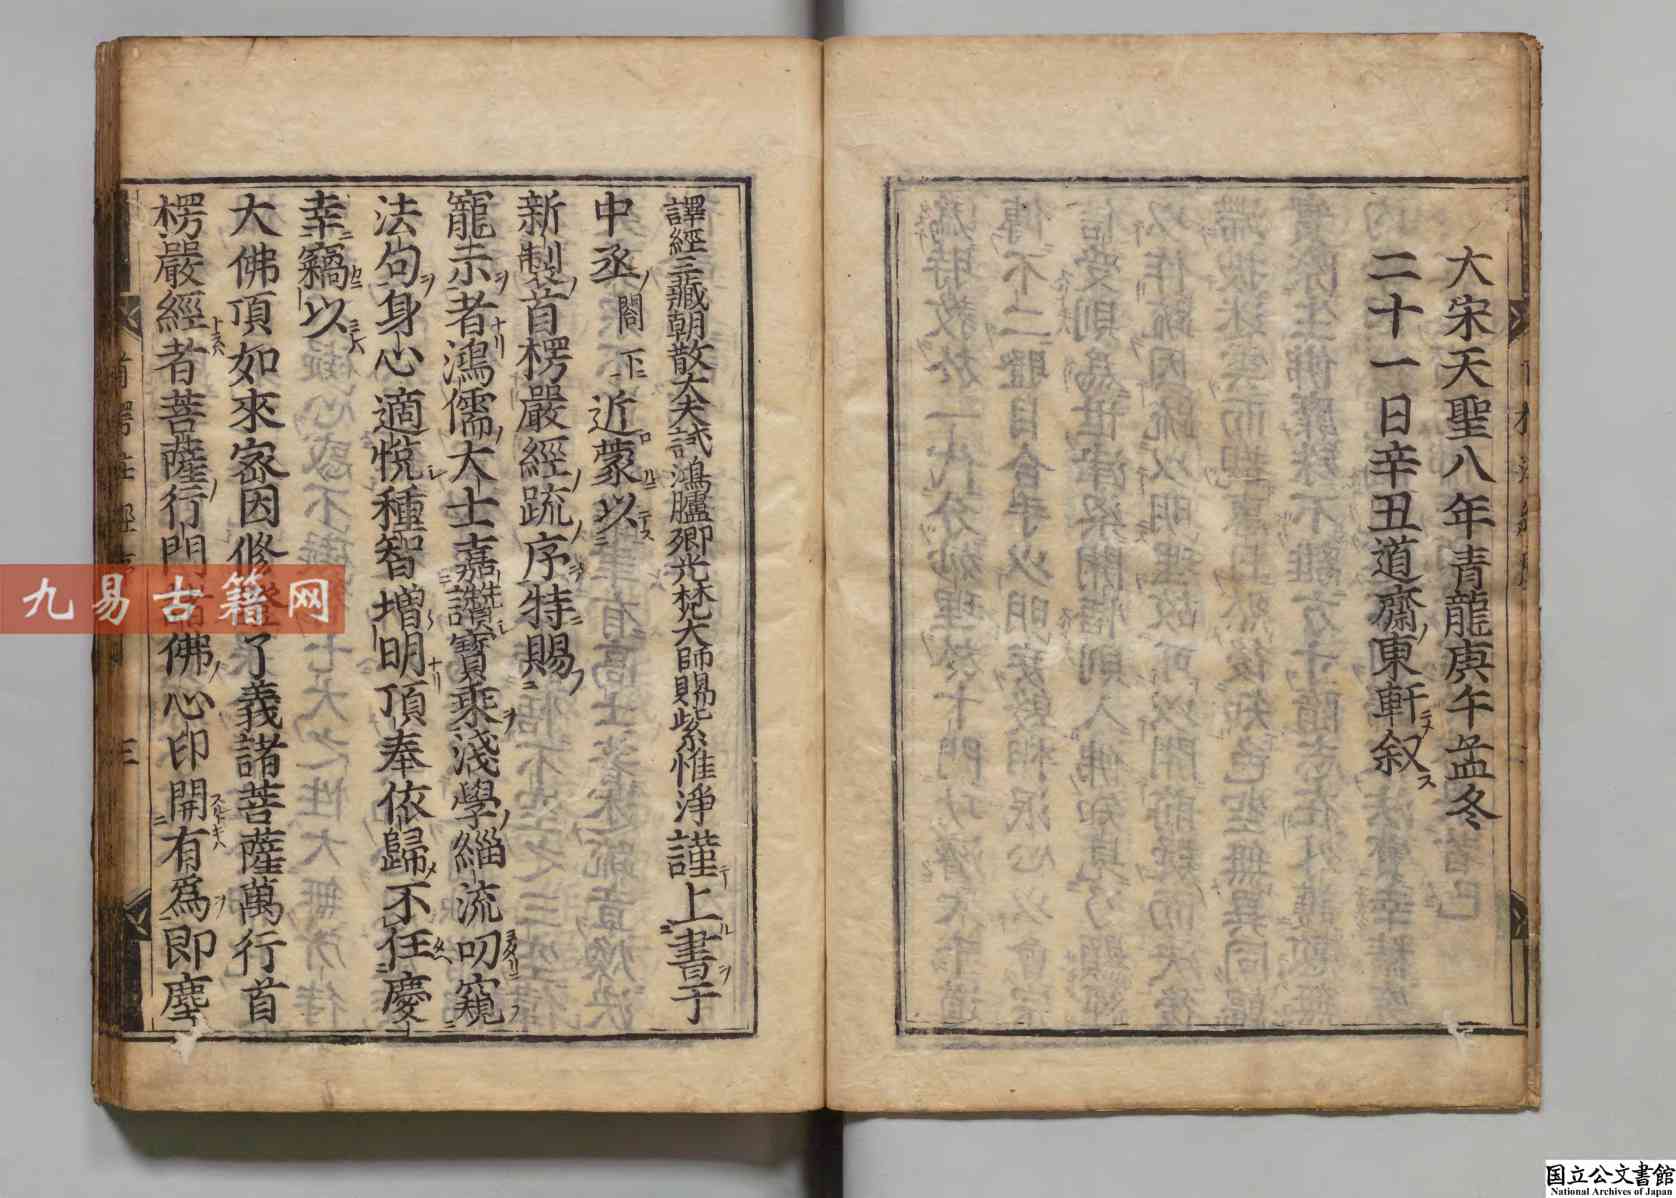 大宋天聖八年青龍庚午孟冬
二十一日辛丑道齋東軒叙
譯經三藏朝散大夫試鴻臚卿光梵大師賜紫惟淨謹上書于
中丞閤下近蒙以
新製首楞嚴經疏序特賜
寵示者鴻儒大士嘉讚寶乘淺學緇流叨窺
法句身心適悅種智增明頂奉依歸不任慶
幸竊以
大佛頂如來密因修證了義諸菩薩萬行首
楞嚴經者菩薩行門諸佛心印開有爲即塵
三
九易古籍网
国立公文書館
National Archives of Japan